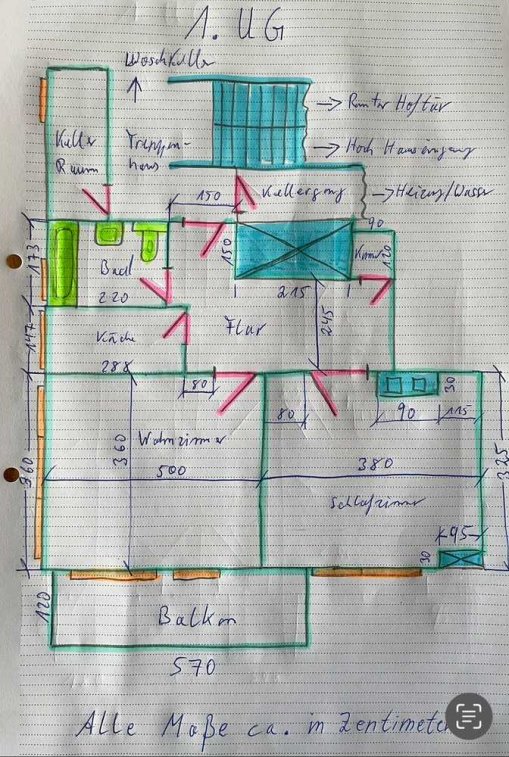 1. UG
Waschkeller
Keller
Raum
Treppen-
haus
→ Runter Hoftür
→ Hoch Hauseingang
Kellergang
→ Heizug/Wasser
150
90
173
Bad
220
150
215
120
Flur
245
147
Küche
288
80
80
90
30
115
360
360
Wohnzimmer
500
380
Schlafzimmer
325
95
30
120
Balkon
570
Alle Maße ca. in Zentimeter